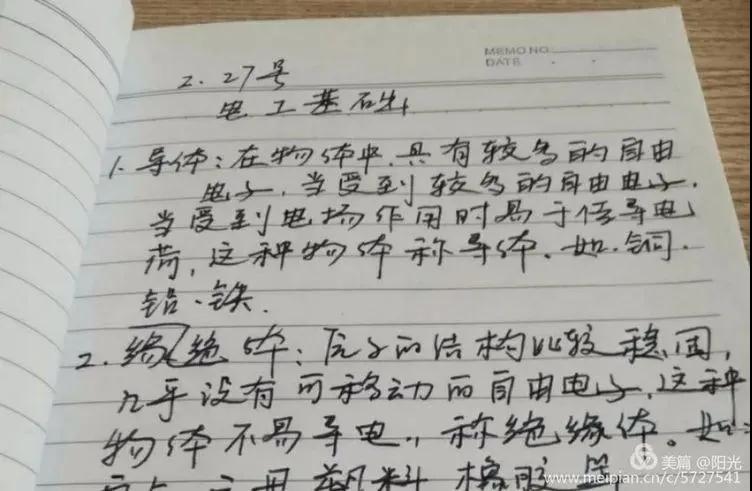 MEMO NO.
DATE . .
2.27号
电工基础
1. 导体:在物体中.具有较多的自由
电子.当受到较多的自由电子.
当受到电场作用时易于传导电
荷,这种物体称导体.如.铜.
铝.铁.
2. 缘绝体:原子的结构比较稳固,
几乎没有可移动的自由电子.这种
物体不易导电,称绝缘体。如:
塑料 橡胶
美篇 @阳光
www.meipian.cn/c/5727541